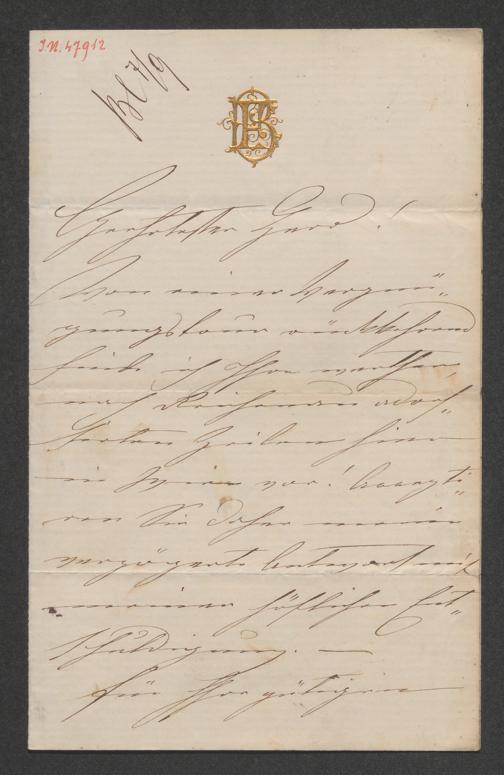 I.N. 47912
Bl 7/9
Geehrtester Herr!
Von einer Vergnü-
gungstour rückkehrend
finde ich Ihre werthen,
nach Reichenau adres-
sirten Zeilen hier
in Wien vor! Accepti-
ren Sie daher meine
verzögerte Antwort mit
meiner höflichen Ent-
schuldigung. —
Für Ihre gütigen